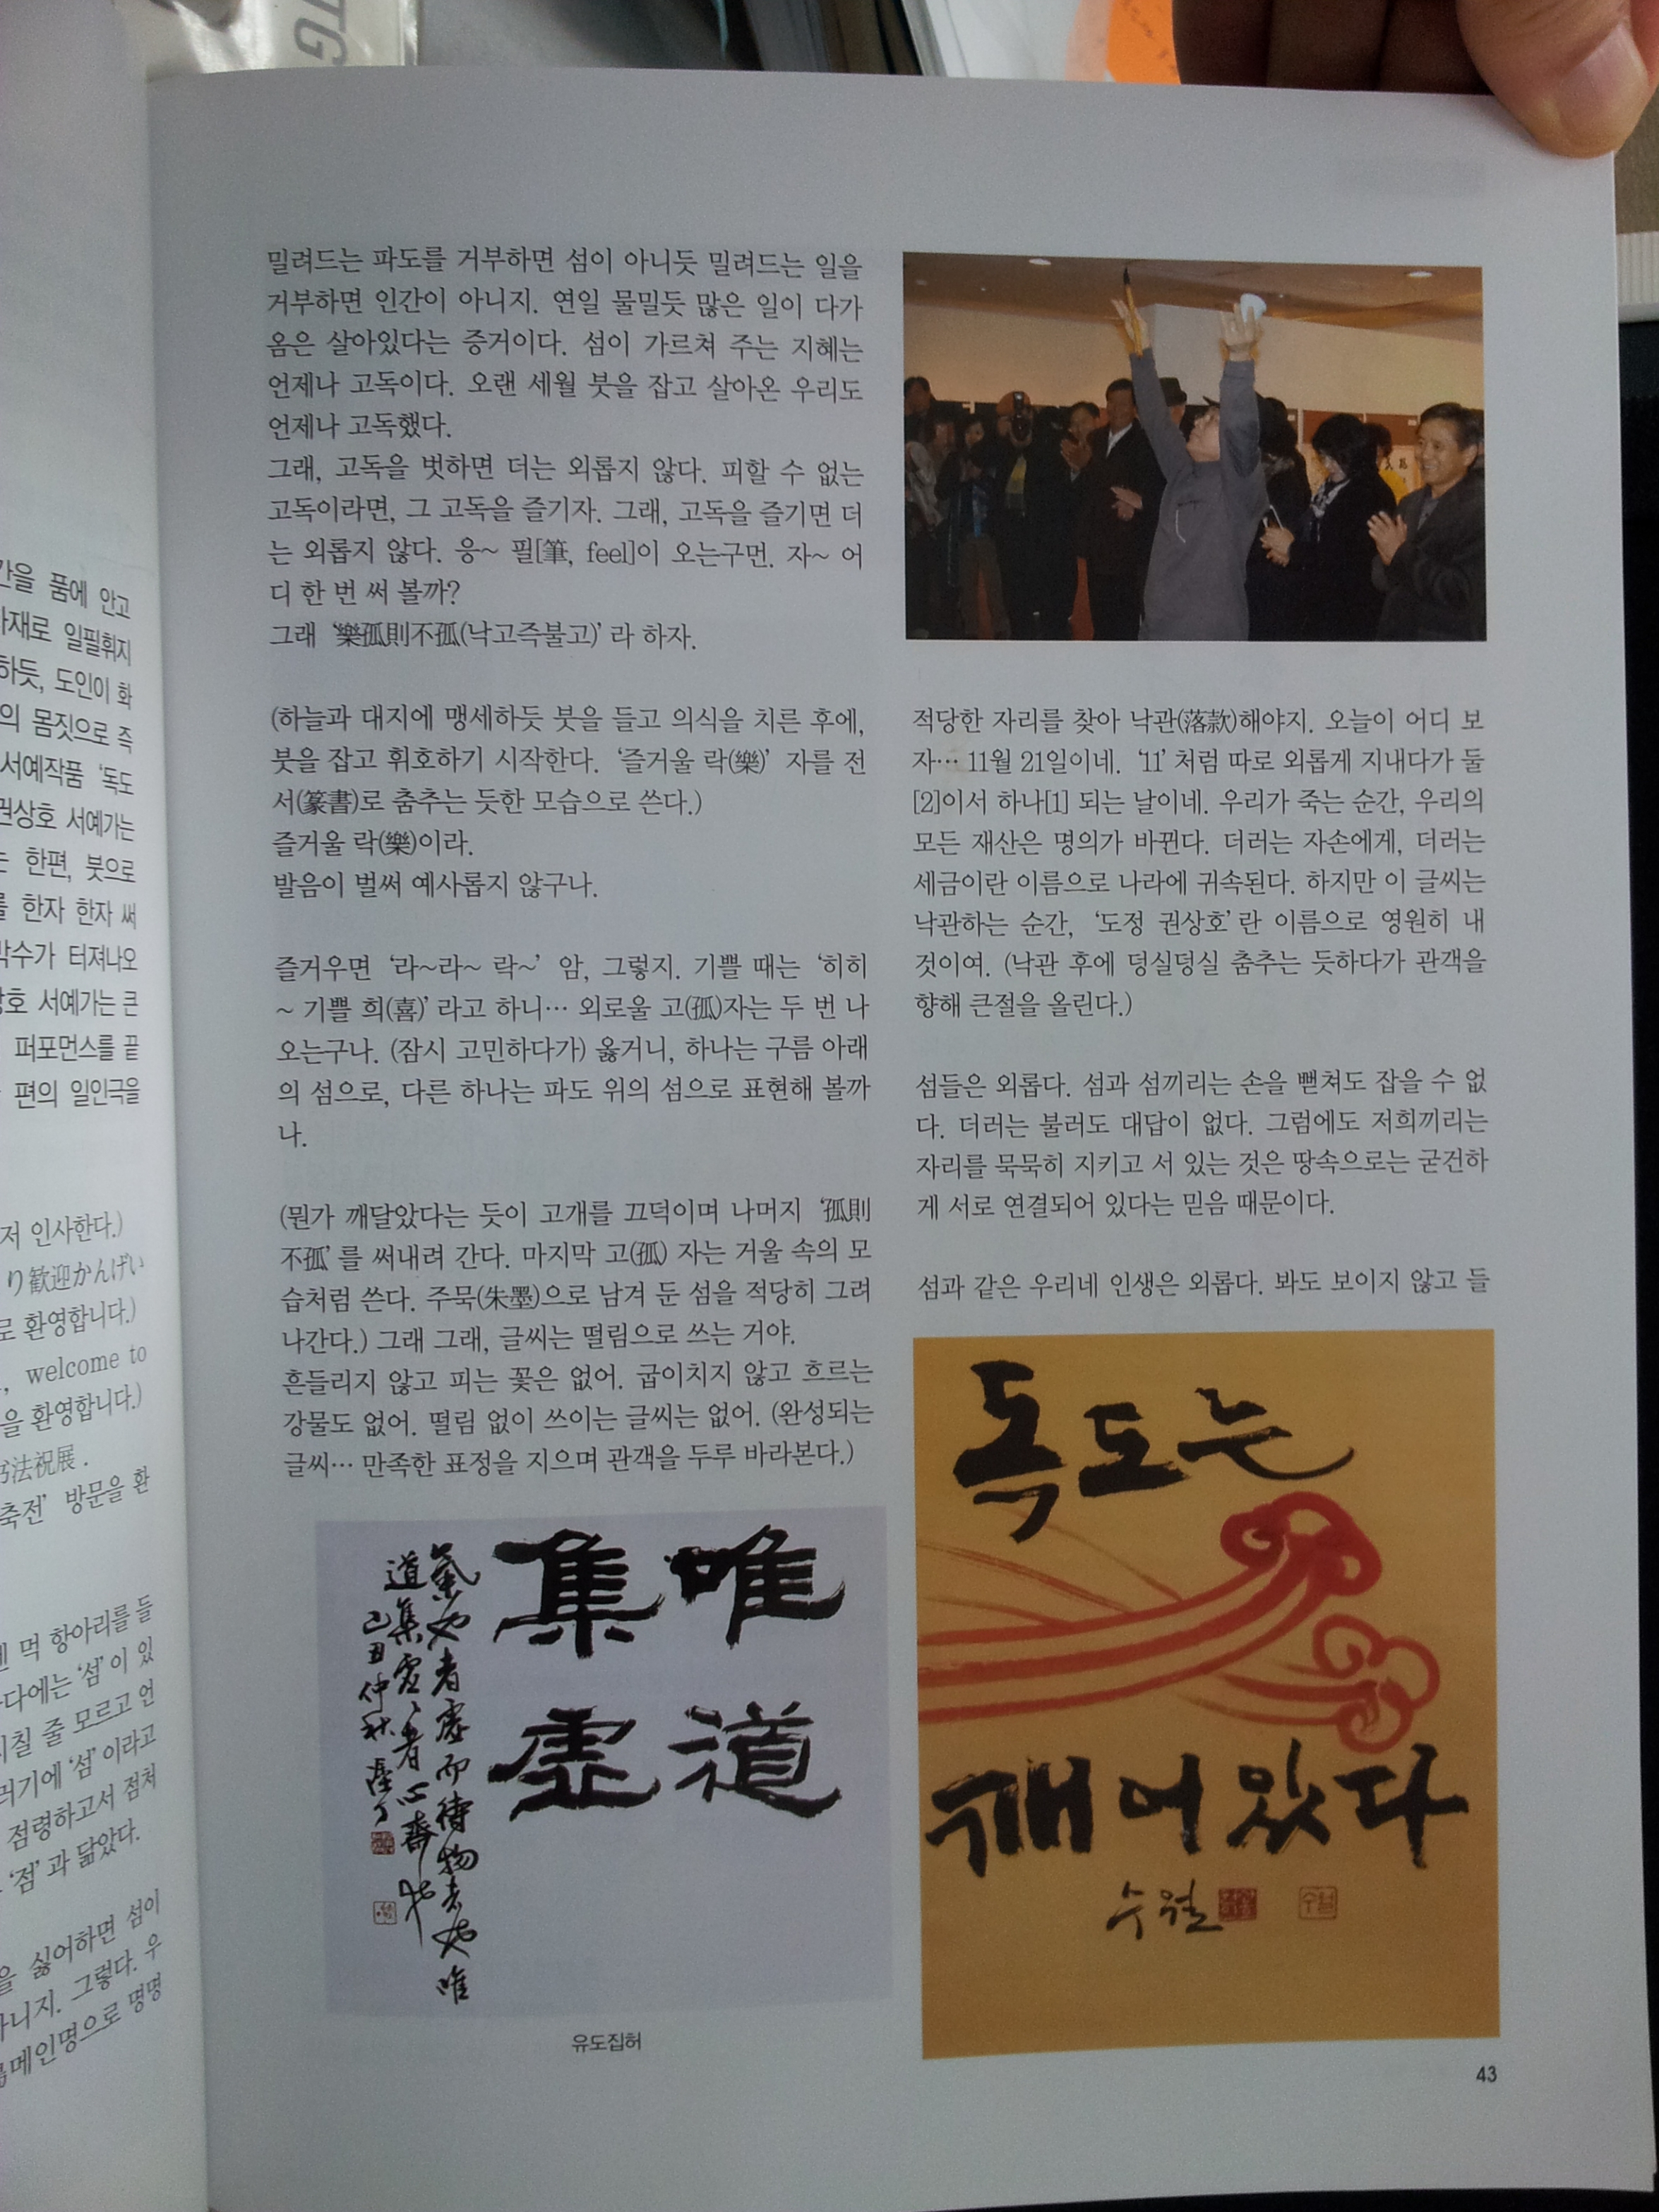 TG
간을 품에 안고
사재로 일필휘지
하듯, 도인이 화
의 몸짓으로 즉
서예작품 ‘독도
권상호 서예가는
는 한편, 붓으로
를 한자 한자 써
박수가 터져나오
상호 서예가는 큰
퍼포먼스를 끝
편의 일인극을
저 인사한다.)
り歓迎かんげい
로 환영합니다.)
, welcome to
을 환영합니다.)
书法祝展.
축전’ 방문을 환
먹 항아리를 들
다에는 ‘섬’이 있
지칠 줄 모르고 언
러기에 ‘섬’이라고
점령하고서 점처
‘점’과 닮았다.
을 싫어하면 섬이
아니지. 그렇다. 우
메인명으로 명명
밀려드는 파도를 거부하면 섬이 아니듯 밀려드는 일을
거부하면 인간이 아니지. 연일 물밀듯 많은 일이 다가
옴은 살아있다는 증거이다. 섬이 가르쳐 주는 지혜는
언제나 고독이다. 오랜 세월 붓을 잡고 살아온 우리도
언제나 고독했다.
그래, 고독을 벗하면 더는 외롭지 않다. 피할 수 없는
고독이라면, 그 고독을 즐기자. 그래, 고독을 즐기면 더
는 외롭지 않다. 응~ 필[筆, feel]이 오는구먼. 자~ 어
디 한 번 써 볼까?
그래 ‘樂孤則不孤(낙고즉불고)’라 하자.
(하늘과 대지에 맹세하듯 붓을 들고 의식을 치른 후에,
붓을 잡고 휘호하기 시작한다. ‘즐거울 락(樂)’ 자를 전
서(篆書)로 춤추는 듯한 모습으로 쓴다.)
즐거울 락(樂)이라.
발음이 벌써 예사롭지 않구나.
즐거우면 ‘라~라~ 락~’ 암, 그렇지. 기쁠 때는 ‘히히
~ 기쁠 희(喜)’라고 하니… 외로울 고(孤)자는 두 번 나
오는구나. (잠시 고민하다가) 옳거니, 하나는 구름 아래
의 섬으로, 다른 하나는 파도 위의 섬으로 표현해 볼까
나.
(뭔가 깨달았다는 듯이 고개를 끄덕이며 나머지 ‘孤則
不孤’를 써내려 간다. 마지막 고(孤) 자는 거울 속의 모
습처럼 쓴다. 주묵(朱墨)으로 남겨 둔 섬을 적당히 그려
나간다.) 그래 그래, 글씨는 떨림으로 쓰는 거야.
흔들리지 않고 피는 꽃은 없어. 굽이치지 않고 흐르는
강물도 없어. 떨림 없이 쓰이는 글씨는 없어. (완성되는
글씨… 만족한 표정을 지으며 관객을 두루 바라본다.)
唯道
集虛
氣也者虛而待物者也唯
道集虛虛者心齋也
己丑仲秋
유도집허
적당한 자리를 찾아 낙관(落款)해야지. 오늘이 어디 보
자… 11월 21일이네. ‘11’처럼 따로 외롭게 지내다가 둘
[2]이서 하나[1] 되는 날이네. 우리가 죽는 순간, 우리의
모든 재산은 명의가 바뀐다. 더러는 자손에게, 더러는
세금이란 이름으로 나라에 귀속된다. 하지만 이 글씨는
낙관하는 순간, ‘도정 권상호’란 이름으로 영원히 내
것이여. (낙관 후에 덩실덩실 춤추는 듯하다가 관객을
향해 큰절을 올린다.)
섬들은 외롭다. 섬과 섬끼리는 손을 뻗쳐도 잡을 수 없
다. 더러는 불러도 대답이 없다. 그럼에도 저희끼리는
자리를 묵묵히 지키고 서 있는 것은 땅속으로는 굳건하
게 서로 연결되어 있다는 믿음 때문이다.
섬과 같은 우리네 인생은 외롭다. 봐도 보이지 않고 들
독도는
깨어있다
수월
수월
43